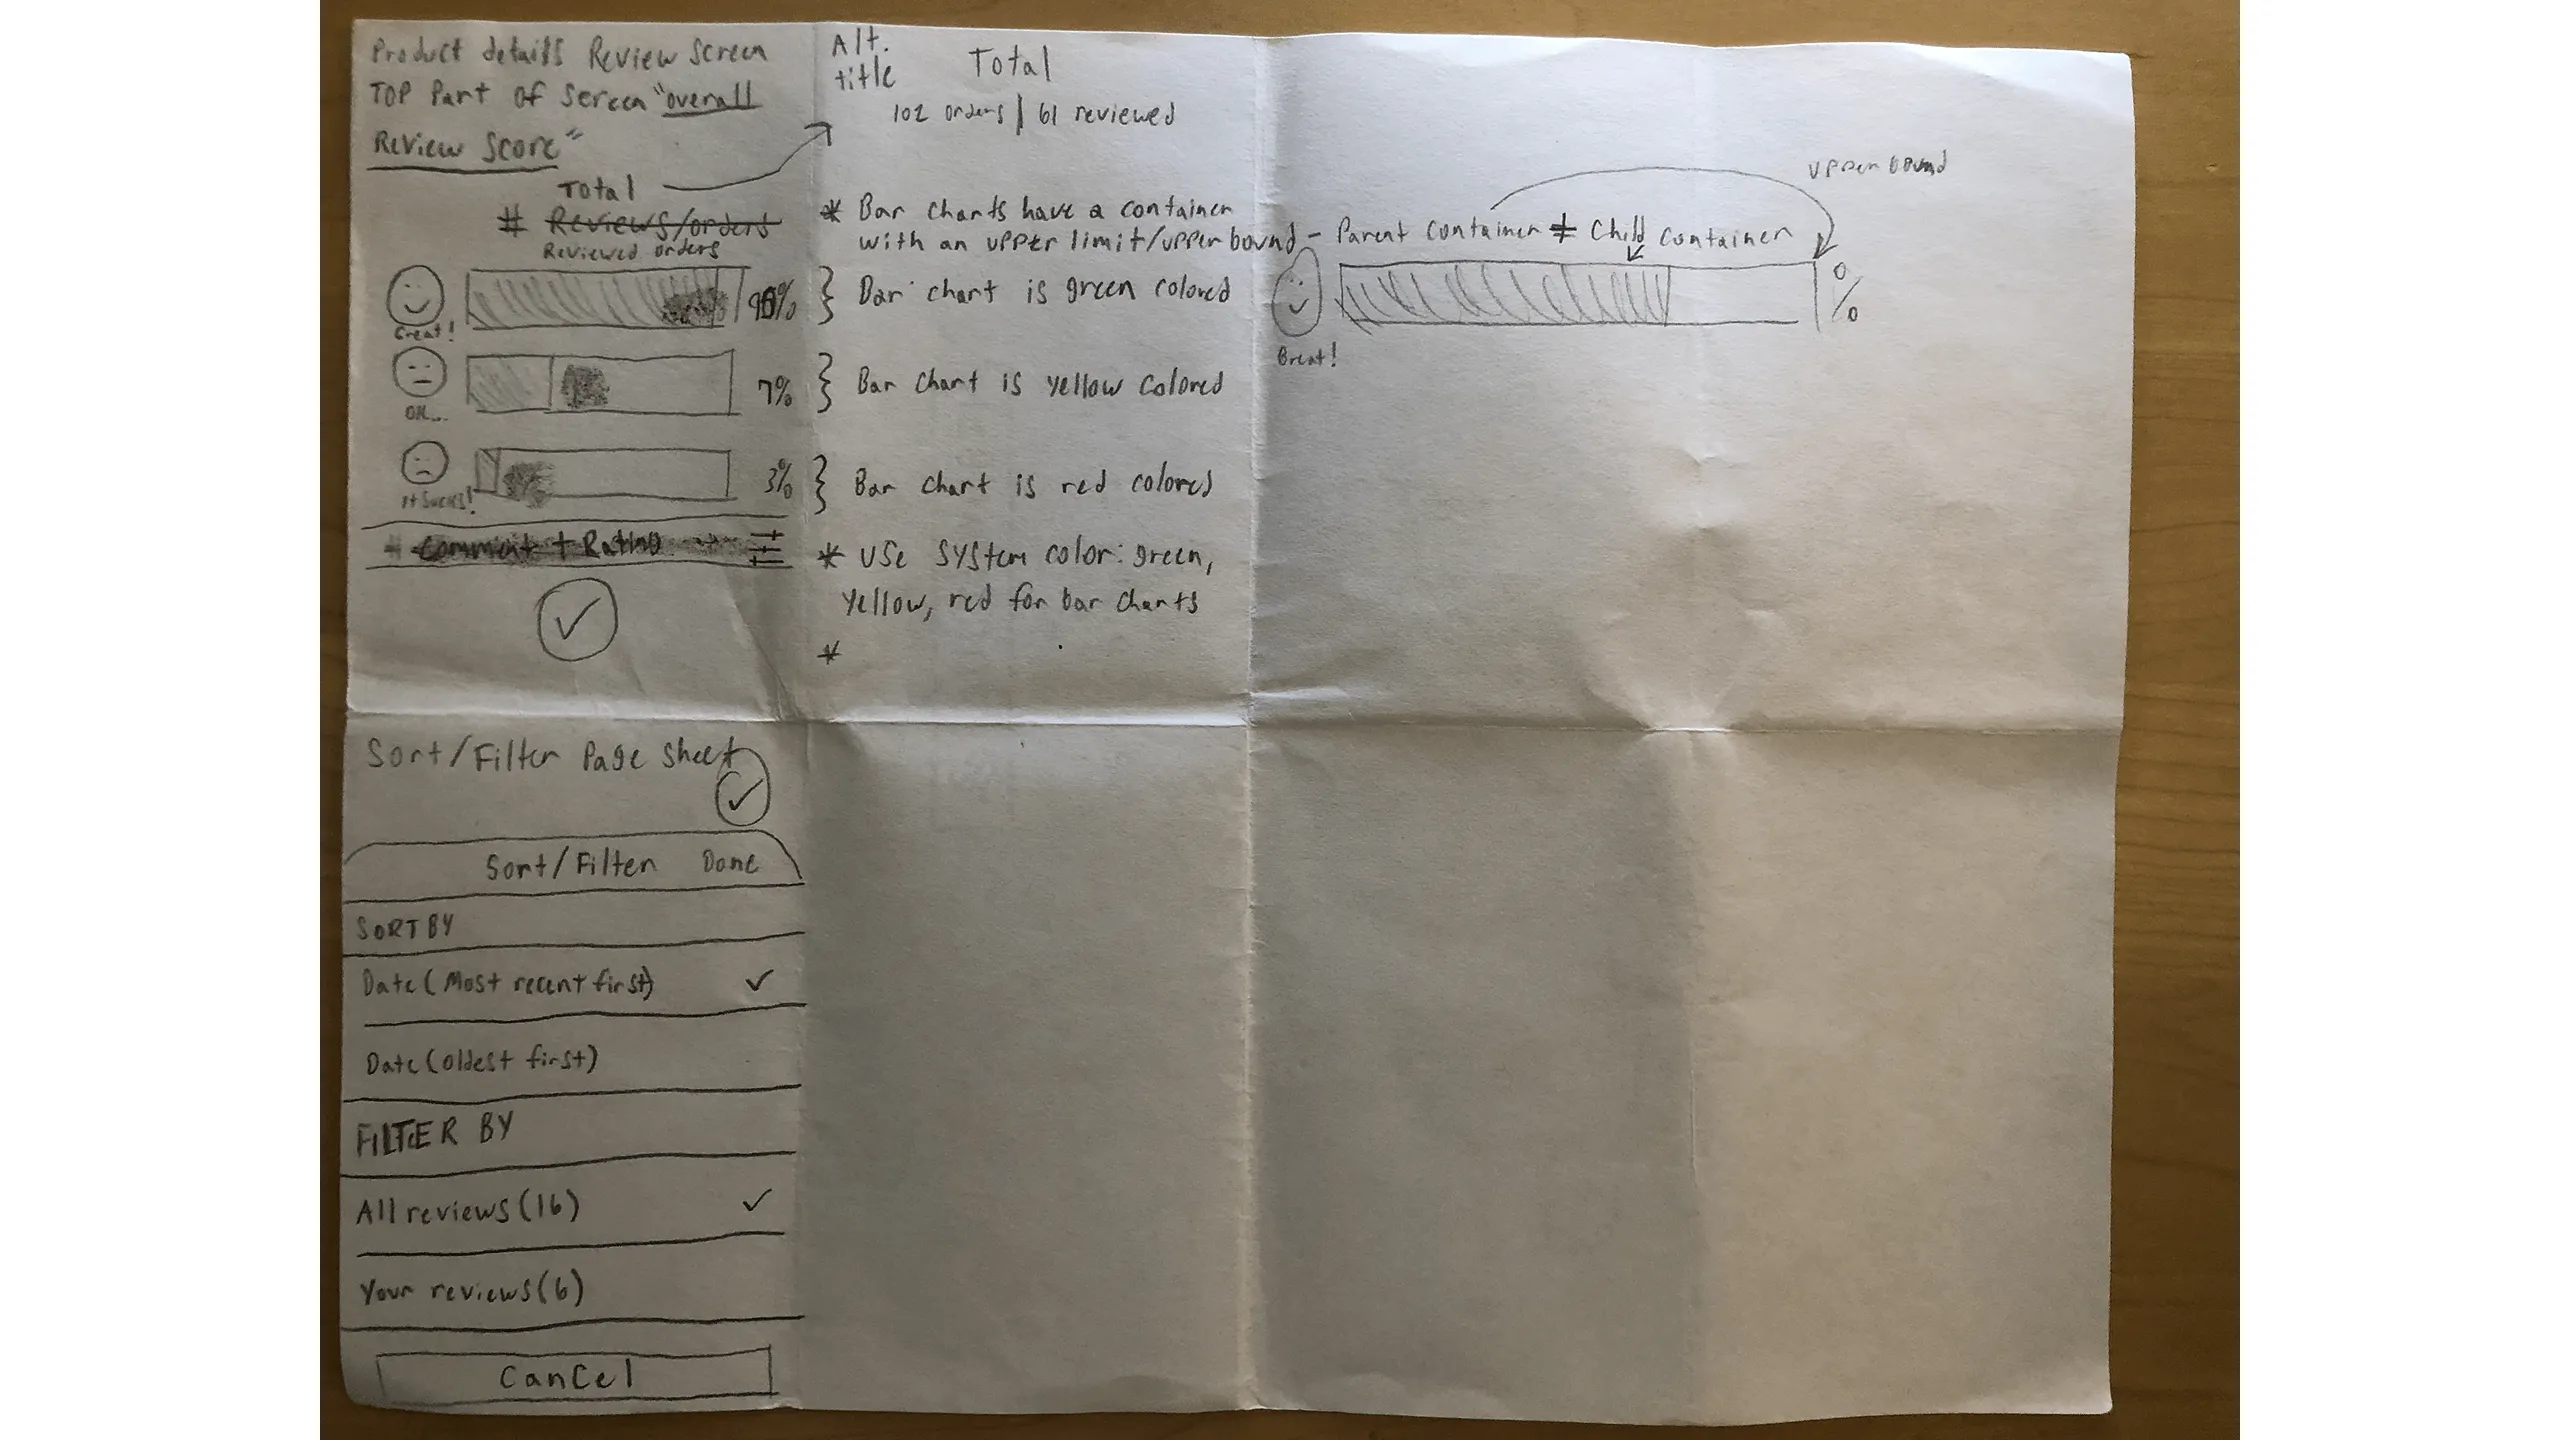 Product details Review Screen
TOP Part of Screen "overall
Review Score"
Total
# Reviews/orders
Reviewed orders
Great!
90%
OK...
7%
It Sucks!
3%
Comment + Rating
Alt.
title
Total
102 orders | 61 reviewed
* Bar charts have a container
with an upper limit/upper bound - Parent container ≠ Child container
} Bar chart is green colored
} Bar chart is yellow colored
} Bar chart is red colored
* Use system color: green,
yellow, red for bar charts
*
upper bound
Great!
%
Sort/Filter Page Sheet
Sort/Filter Done
SORT BY
Date (Most recent first) ✓
Date (oldest first)
FILTER BY
All reviews (16) ✓
Your reviews (6)
Cancel